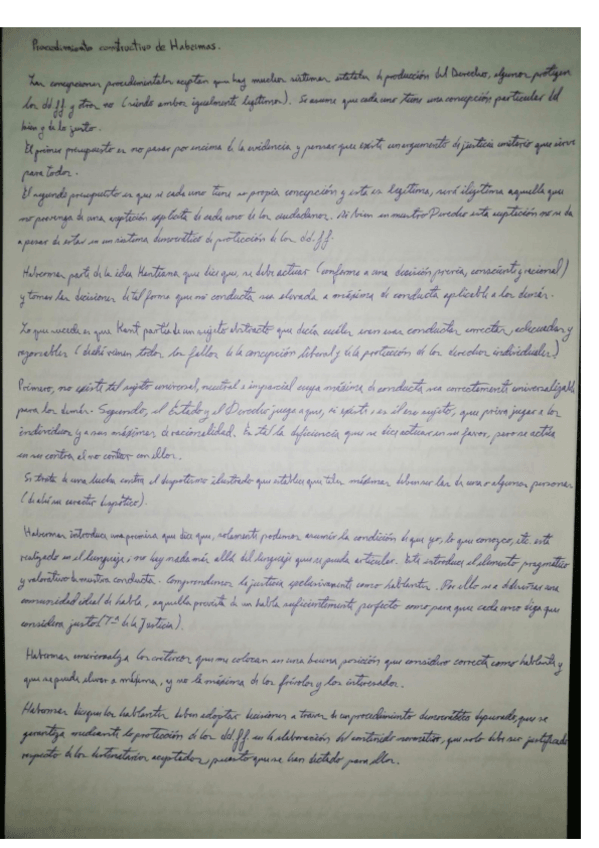 Procedimiento constructivo de Habermas.
Las concepciones procedimentales aceptan que hay muchos sistemas estatales de producción del Derecho, algunos protegen
los dd.ff y otros no (siendo ambos igualmente legítimos). Se asume que cada uno tiene una concepción particular del
bien y de lo justo.
El primer presupuesto es no pasar por encima de la evidencia y pensar que existe un argumento de justicia unitario que sirve
para todos.
El segundo presupuesto es que si cada uno tiene su propia concepción y esta es legítima, será ilegítima aquella que
no provenga de una aceptación explícita de cada uno de los ciudadanos. Si bien en nuestro Derecho esta aceptación no se da
a pesar de estar en un sistema democrático de protección de los dd.ff.
Habermas parte de la idea Kantiana que dice que, se debe actuar (conforme a una decisión previa, consciente y racional)
y tomar las decisiones de tal forma que mi conducta, sea elevada a máxima de conducta aplicable a los demás.
Lo que sucede es que Kant partía de un sujeto abstracto que decía cuáles eran esas conductas correctas, adecuadas y
razonables (de ahí vienen todos los fallos de la concepción liberal y de la protección de los derechos individuales)
Primero, no existe tal sujeto universal, neutral e imparcial cuya máxima de conducta sea correctamente universalizable
para los demás. Segundo, el Estado y el Derecho juega a que, si existe, es él ese sujeto, que priva jugar a los
individuos y a sus máximas de racionalidad. Es tal la deficiencia que se dice actuar en su favor, pero se actúa
en su contra al no contar con ellos.
Se trata de una lucha contra el despotismo ilustrado que establece que tales máximas deben ser las de una o algunas personas
(de ahí su carácter despótico).
Habermas introduce, una premisa que dice que, solamente podemos asumir la condición de que yo, lo que conozco, etc. está
realizado en el lenguaje, no hay nada más allá del lenguaje que se pueda articular. Esto introduce el elemento pragmático
y valorativo de nuestra conducta. Comprendemos la justicia exclusivamente como hablantes. Por ello va a diseñar una
comunidad ideal de habla, aquella provista de un habla suficientemente perfecto como para que cada uno diga que
considera justo (Tª de la Justicia).
Habermas universaliza los criterios que me colocan en una buena posición que considero correcta como hablante y
que se puede elevar a máxima, y no la máxima de los frívolos y los interesados.
Habermas dice que los hablantes deben adoptar decisiones a través de un procedimiento democrático depurado, que se
garantiza mediante la protección de los dd.ff en la elaboración del contenido normativo, que solo debe ser justificado
respecto de los destinatarios aceptados, puesto que se han dictado para ellos.